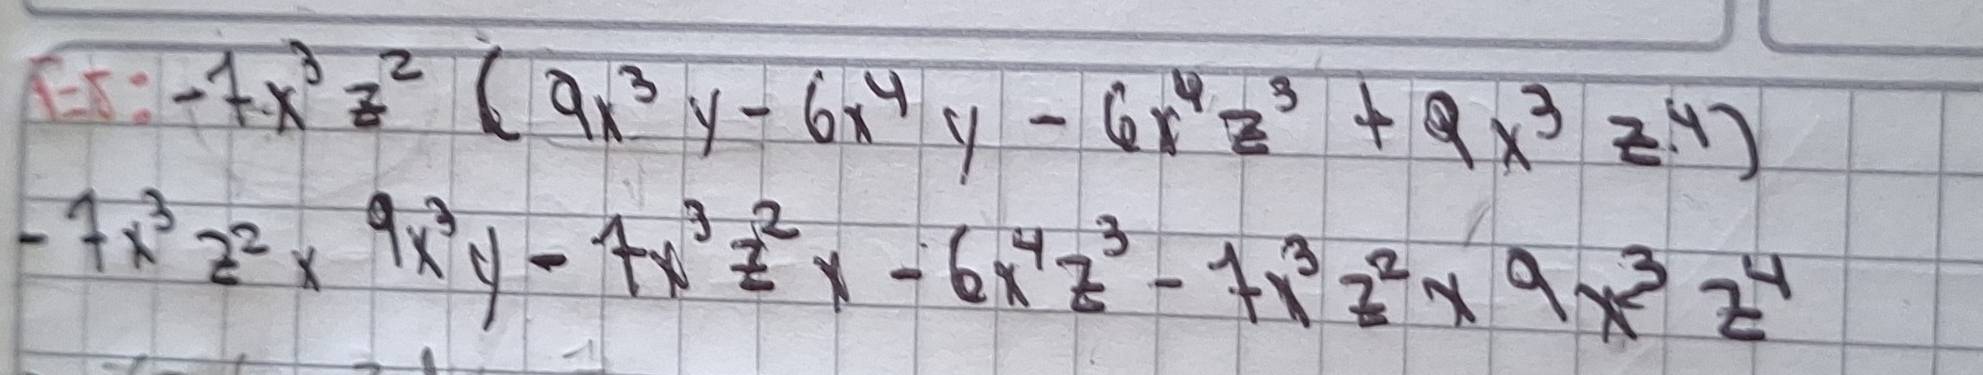 -7x³z² (9x³y - 6x⁴y - 6x⁴z³ + 9x³z⁴)
-7x³z² x 9x³y - 7x³z² x - 6x⁴z³ - 7x³z² x 9x³z⁴